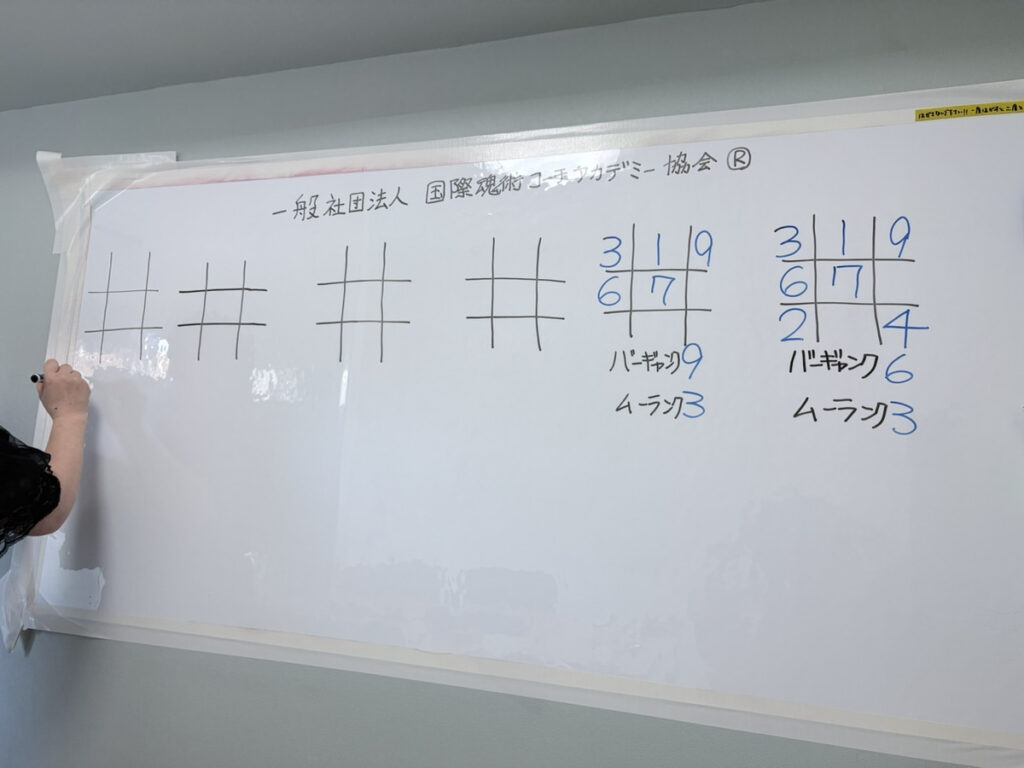 一般社団法人 国際魂術コーチアカデミー協会 ®
3 1 9
6 7
バーギャンク9
ムーランク3
3 1 9
6 7
2 4
バーギャンク6
ムーランク3